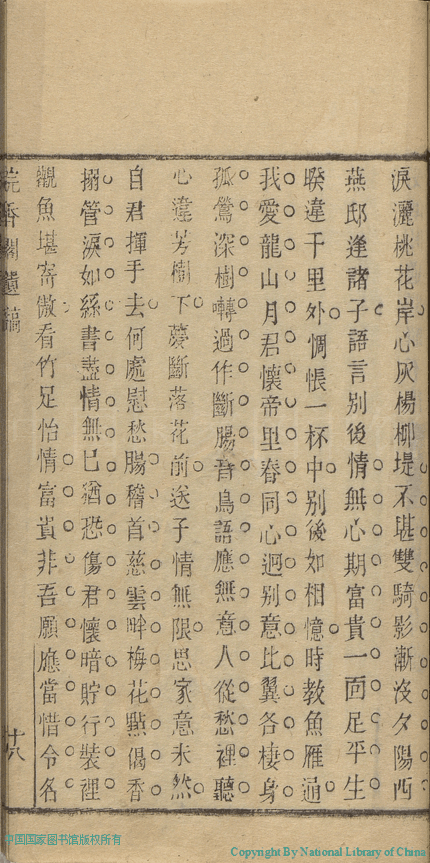 淚灑桃花岸心灰楊柳堤不堪雙騎影漸沒夕陽西
燕邸逢諸子語言別後情無心期富貴一面足平生
暌違千里外惆悵一杯中別後如相憶時教魚雁通
我愛龍山月君懷帝里春同心迥別意比翼各棲身
孤鶯深樹囀過作斷腸音鳥語應無意人從愁裡聽
心違芳樹下夢斷落花前送子情無限思家意未然
自君揮手去何處慰愁腸稽首慈雲畔梅花點偈香
搦管淚如絲書盡情無已猶恐傷君懷暗貯行裝裡
觀魚堪寄傲看竹足怡情富貴非吾願應當惜令名
浣香閣遺稿 十八
中国国家图书馆版权所有
Copyright By National Library of China